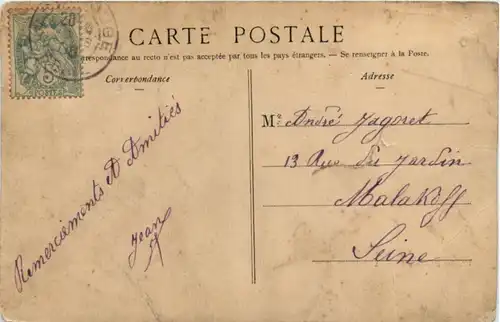 CARTE POSTALE
respondance au recto n'est pas acceptée par tous les pays étrangers. — Se renseigner à la Poste.
Correspondance
Adresse
Remerciements et Amitiés
Jean
Mr André Jagoret
13 Rue du Jardin
Malakoff
Seine
5c
POSTES